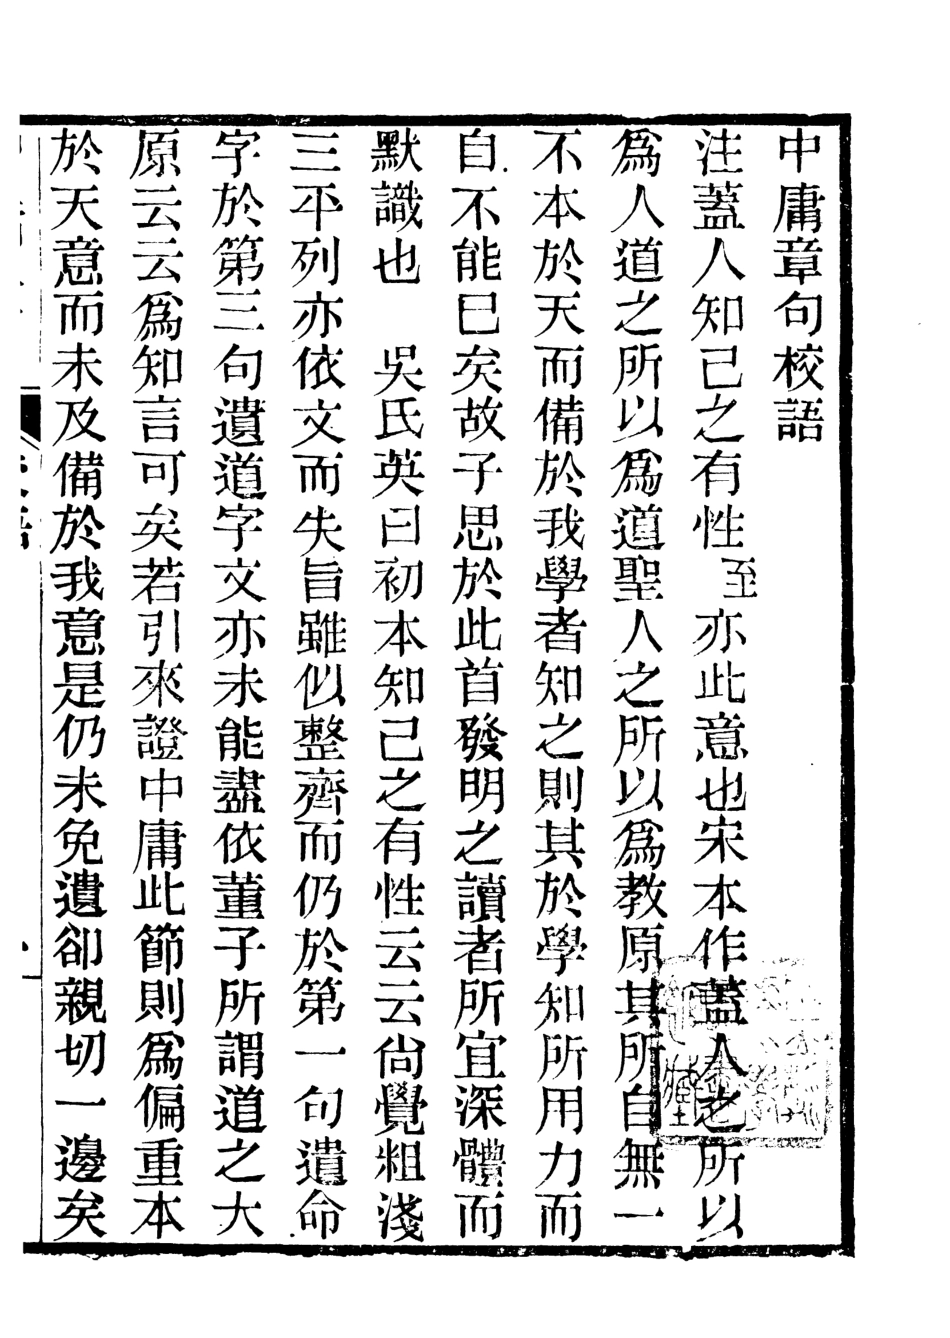 中庸章句校語
注蓋人知己之有性至亦此意也宋本作蓋人之所以
爲人道之所以爲道聖人之所以爲教原其所自無一
不本於天而備於我學者知之則其於學知所用力而
自不能已矣故子思於此首發明之讀者所宜深體而
默識也　吳氏英曰初本知己之有性云云尙覺粗淺
三平列亦依文而失旨雖似整齊而仍於第一句遺命
字於第三句遺道字文亦未能盡依董子所謂道之大
原云云爲知言可矣若引來證中庸此節則爲偏重本
於天意而未及備於我意是仍未免遺卻親切一邊矣